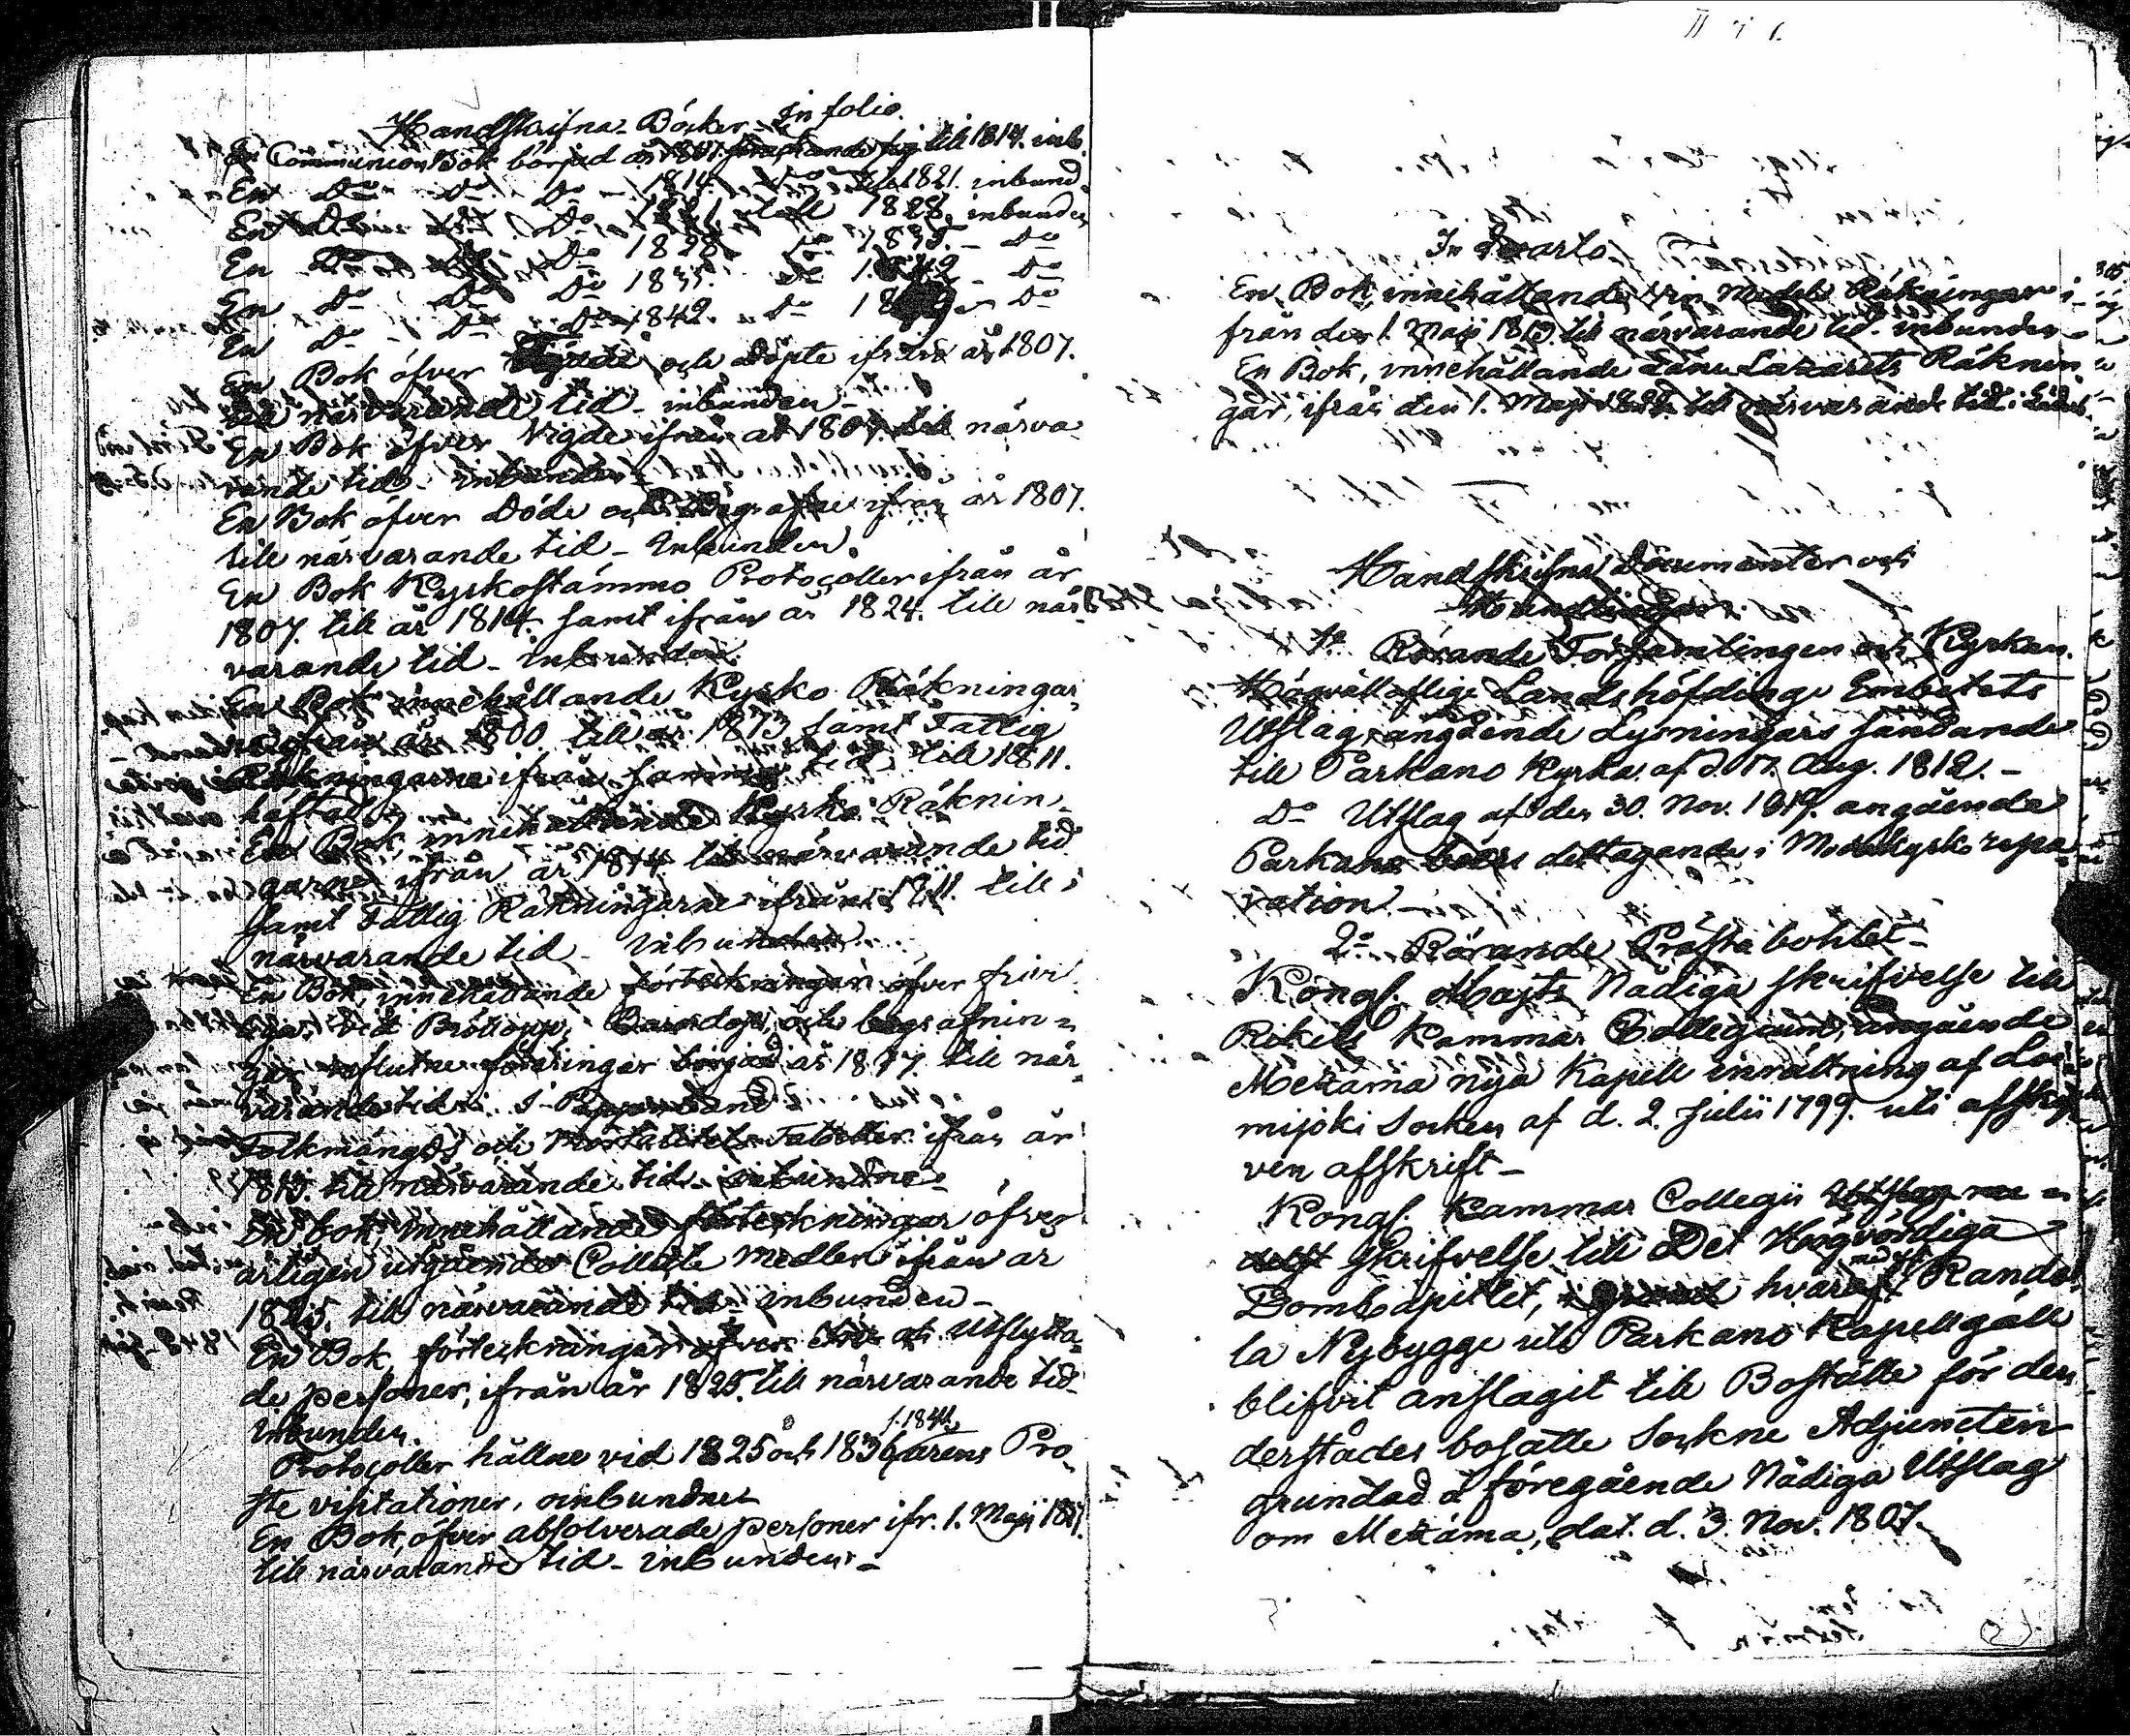 Handskrifna Böcker in folio.
En Communion Bok börjad år 1807. sträckande sig till 1814. inb.
En Do Do Do 1814. Do till 1821. inbund.
En Do Do Do 1821 till 1828. inbunden
En Do Do Do 1828 Do 1835. - Do
En Do Do Do 1835. Do 1842 - Do
En Do Do Do 1842. Do Do
En Bok öfver födde och döpte ifrån år 1807.
till närvarande tid - inbunden -
En Bok öfver Vigde ifrån år 1807. till närva-
rande tid - inbunden -
En Bok öfver Döde och Begrafne ifrån år 1807.
till närvarande tid - Inbunden.
En Bok Kyrkostämmo Protocoller ifrån år
1807. till år 1814. samt ifrån år 1824. till när-
varande tid - inbunden.
En Bok innehållande Kyrko Räkningar,
ifrån år 1800 till år 1813 samt Fattig
Räkningarne ifrån samma tid till 1811.
häftad
En Bok innehållande Kyrko Räknin-
garne ifrån år 1814 till närvarande tid
samt Fattig Räkningarne ifrån 1811. till
närvarande tid - Inbunden.
En Bok, innehållande förteckningar öfver frivi-
liga vid Bröllopp, Barndop, och begrafnin-
gar influtne föräringar börjad år 1817. till när-
varande tid. i Pappersband
Folkmängds och Mortalitets Tabeller ifrån år
1815. till närvarande tid - inbundne -
En bok innehållande förteckningar öfver
årligen utgående Collecte Medlen ifrån år
1825. till närvarande tid - inbunden -
En Bok, förteckningar öfver In och Utflytta-
de personer, ifrån år 1825. till närvarande tid -
Inbunden.
1.1841.
Protocoller hållne vid 1825 och 1836 årens Pro-
ste visitationer, oinbundne
En Bok, öfver absolverade personer ifr. 1. Maji
till närvarande tid - inbunden -
In Quarto
En Bok innehållande Vin Medels Räkningar i-
från den 1. Maji 1813. till närvarande tid - inbunden -
En Bok, innehållande Läne Lazarets Räknin-
gar, ifrån den 1. Maji till närvarande tid.
Handskrifne Documenter och
Handlingar.
1o Rörande Församlingen och Kyrkan.
Högvälloflige Landshöfdinge Embetets
Utslag, angående Lysningars sändande
till Parkano Kyrka. af d. 17. Aug. 1812. -
Do Utslag af den 30. Nov. 1819. angående
Parkano boers deltagande i Moderkyrko repa-
ration. -
2o Rörande Prästa bohlet -
Kongl. Majts Nådiga skrifvelse till
Rikets Kammar Collegium, angående
Metzäma nya Kapell inrättning af Loi-
mijoki Socken af d. 2. Julii 1799. uti afskref-
ven afskrift -
Kongl. Kammar Collegii
skrifvelse till Det Högvördiga
Domkapitlet, hvar medelst Rando-
la Nybygge uti Parkano Kapellgäll
blifvit anslagit till Boställe för den
derstädes bosatte Sockne Adjuncten
grundad å föregående Nådiga Utslag
om Metzäma, dat. d. 3. Nov. 1807.